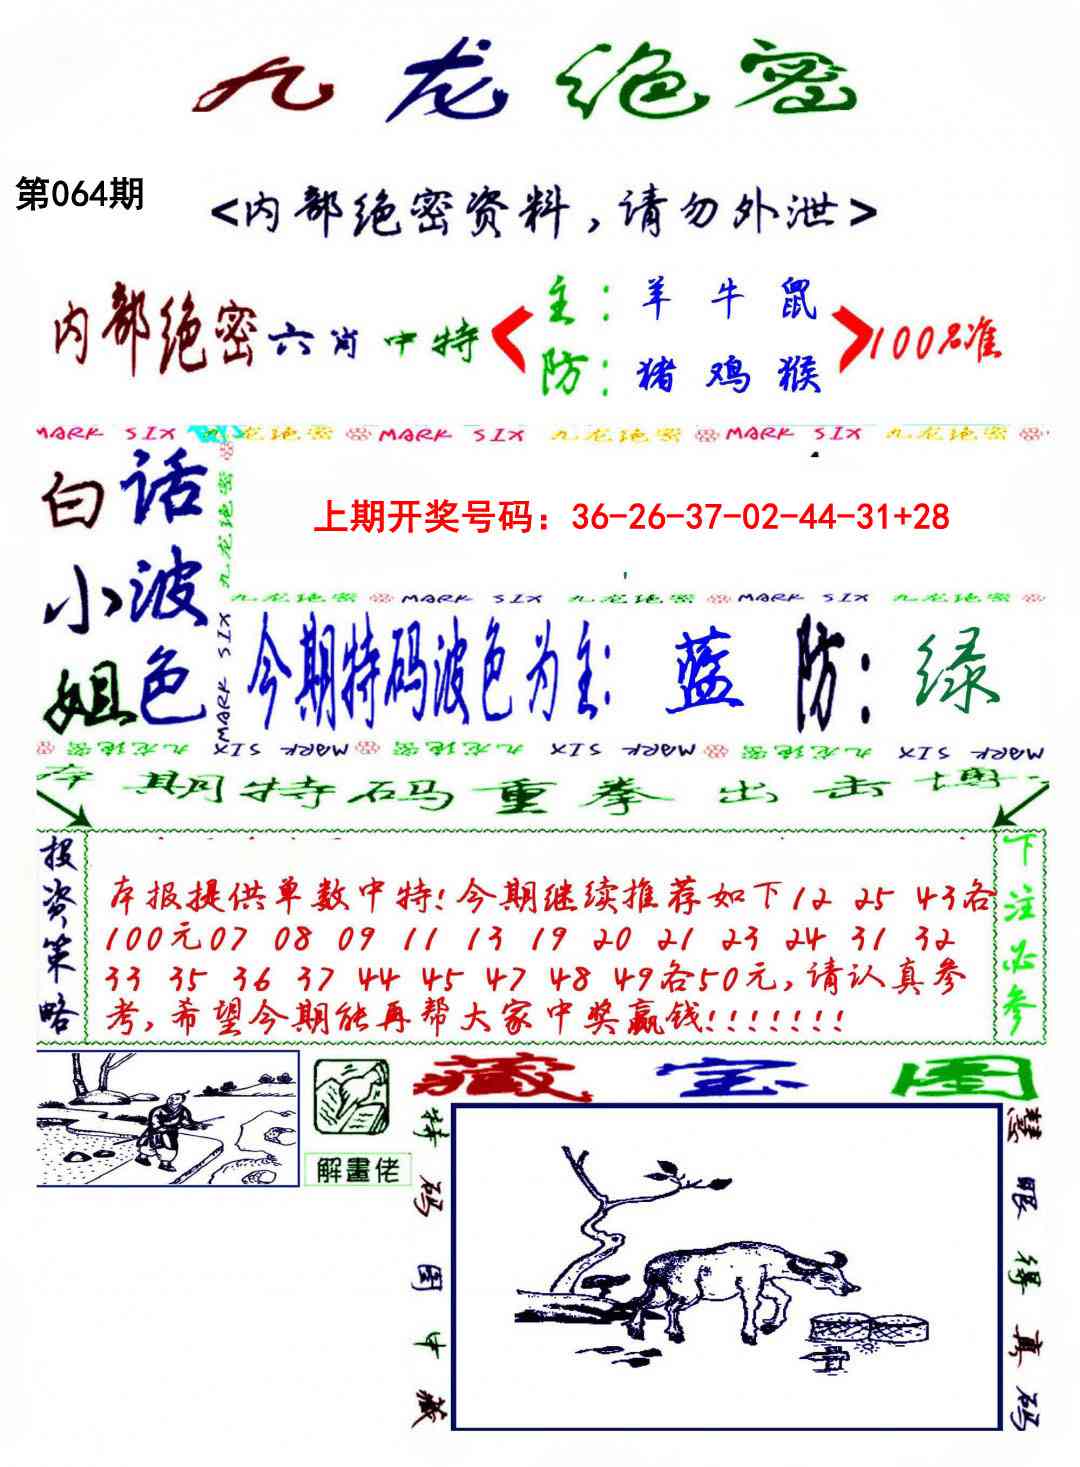 九龙绝密
第064期
<内部绝密资料,请勿外泄>
内部绝密六肖中特<主:羊牛鼠
防:猪鸡猴>100%准
MARK SIX 九龙绝密 MARK SIX 九龙绝密 MARK SIX 九龙绝密
白小姐
话波色
九龙绝密
MARK SIX
上期开奖号码：36-26-37-02-44-31+28
九龙绝密 MARK SIX 九龙绝密 MARK SIX 九龙绝密
今期特码波色为主:蓝 防:绿
九龙绝密 MARK SIX 九龙绝密 MARK SIX 九龙绝密 MARK SIX
本期特码重拳出击博
投资策略
本报提供单数中特!今期继续推荐如下12 25 43各
100元07 08 09 11 13 19 20 21 23 24 31 32
33 35 36 37 44 45 47 48 49各50元,请认真参
考,希望今期能再帮大家中奖赢钱!!!!!!!
下注必参
解畫佬
藏宝图
特码图中藏
慧眼得真码